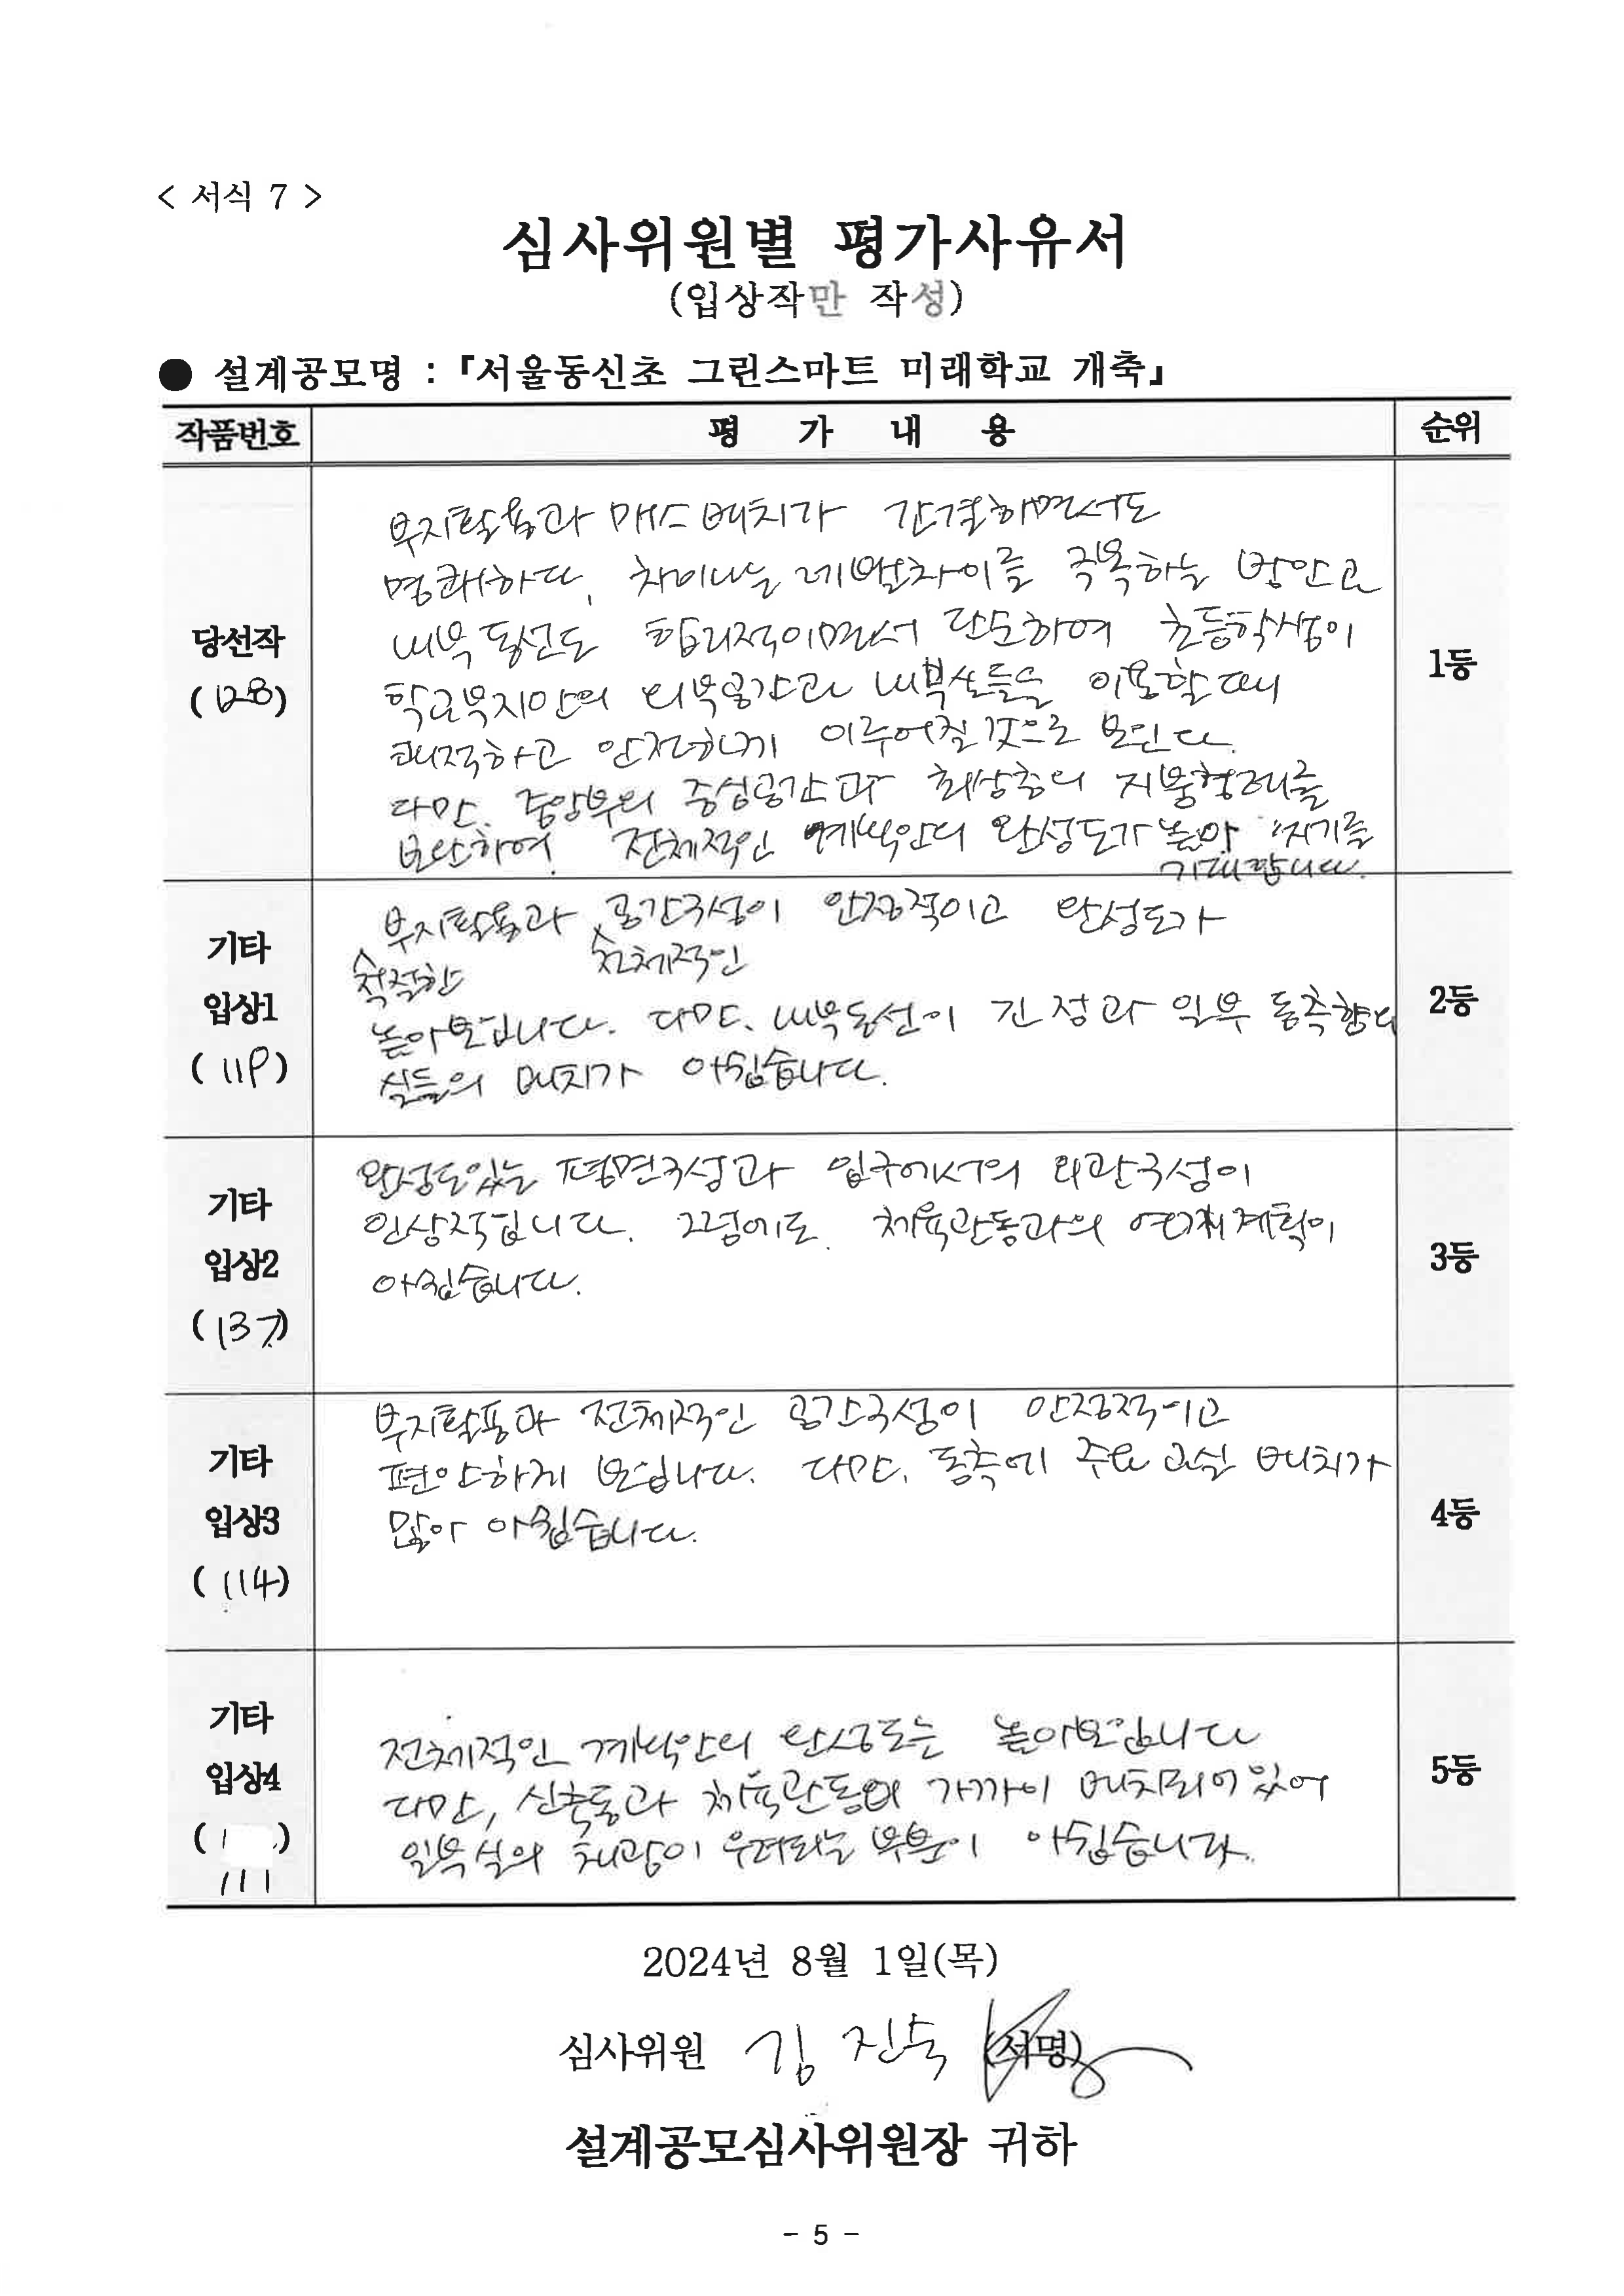 < 서식 7 >
심사위원별 평가사유서
(입상작만 작성)
● 설계공모명 : 『서울동신초 그린스마트 미래학교 개축』
작품번호 평 가 내 용 순위
당선작
(128)
부지활용과 매스배치가 간결하면서도
명쾌하다. 차이나는 레벨차이를 극복하는 방안과
내부 동선도 합리적이면서 단순하여 초등학생이
학교부지안의 외부공간과 내부실들을 이용할때
쾌적하고 안전하게 이루어질 것으로 보인다.
다만, 중앙부의 중심공간과 최상층의 지붕형태를
보완하여 전체적인 계획안의 완성도가 높아지기를
기대합니다.
1등
기타
입상1
(119)
적절한 부지활용과 전체적인 공간구성이 안정적이고 완성도가
높아보입니다. 다만, 내부동선이 긴 점과 일부 동측향의
실들의 배치가 아쉽습니다.
2등
기타
입상2
(137)
완성도있는 평면구성과 입구에서의 외관구성이
인상적입니다. 그럼에도 체육관동과의 연계계획이
아쉽습니다.
3등
기타
입상3
(114)
부지활용과 전체적인 공간구성이 안정적이고
편안하게 보입니다. 다만, 동측에 주요 교실 배치가
많아 아쉽습니다.
4등
기타
입상4
(1 )
111
전체적인 계획안의 완성도는 높아보입니다
다만, 신축동과 체육관동이 가까이 배치되어있어
일부실의 채광이 우려되는 부분이 아쉽습니다.
5등
2024년 8월 1일(목)
심사위원 김진숙 (서명)
설계공모심사위원장 귀하
- 5 -